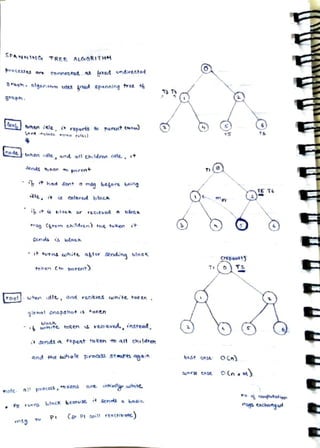 SPANNING TREE ALGORITHM
processes are connected as fixed undirected
graph. algorithm uses fixed spanning tree of
graph.
leaf when idle, it reports to parent
node when idle, and all children idle, it
sends token to parent
- if it had sent a msg before being
idle, it is colored black
- if it is black or received a black
msg (from children) the token it
sends is black
- it turns white after sending black
token (to parent)
root when idle, and recieves white token,
global snapshot is taken
- if black token is recieved, instead,
it sends a repeat token to all children
and the whole process starts again
note: all process, tokens are initially white
P5 turns black because it sends a basic
msg to P1 (so P1 will reactivate)
0
T3 T4
1
2
3
4
5
6
T5
T6
T1
0
1
msg
2
T5 T6
3
4
5
6
(repeat)
T1
0
T2
1
2
3
4
5
6
best case O(n)
worst case O(n * M)
no of computation
msgs exchanged